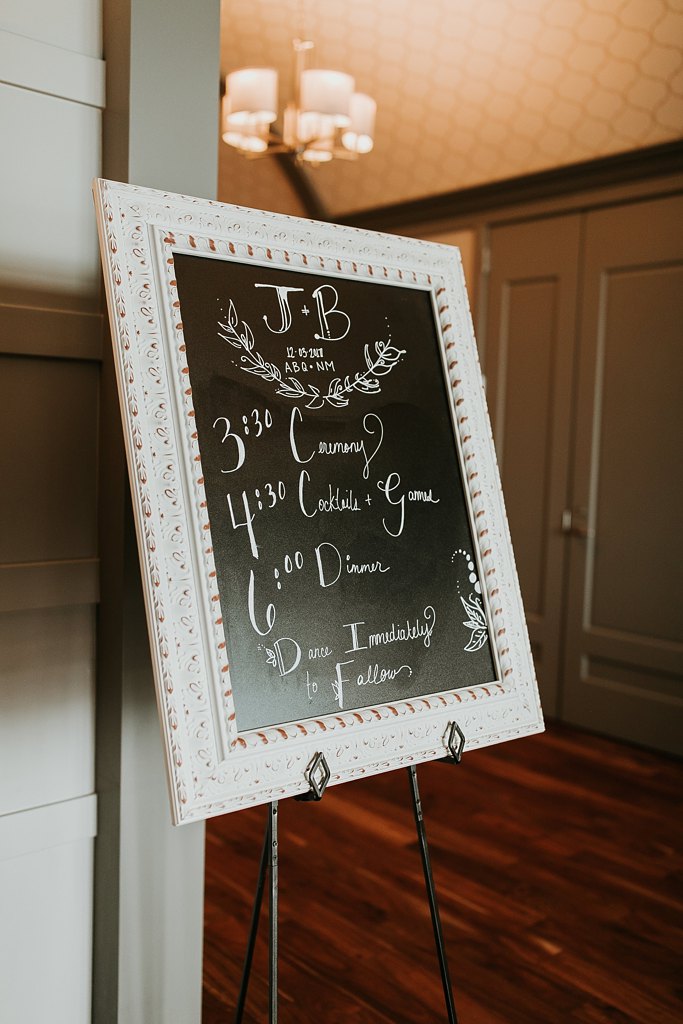 J + B
ABQ • NM
3:30 Ceremony
4:30 Cocktails + Games
6:00 Dinner
Dance Immediately
to Follow